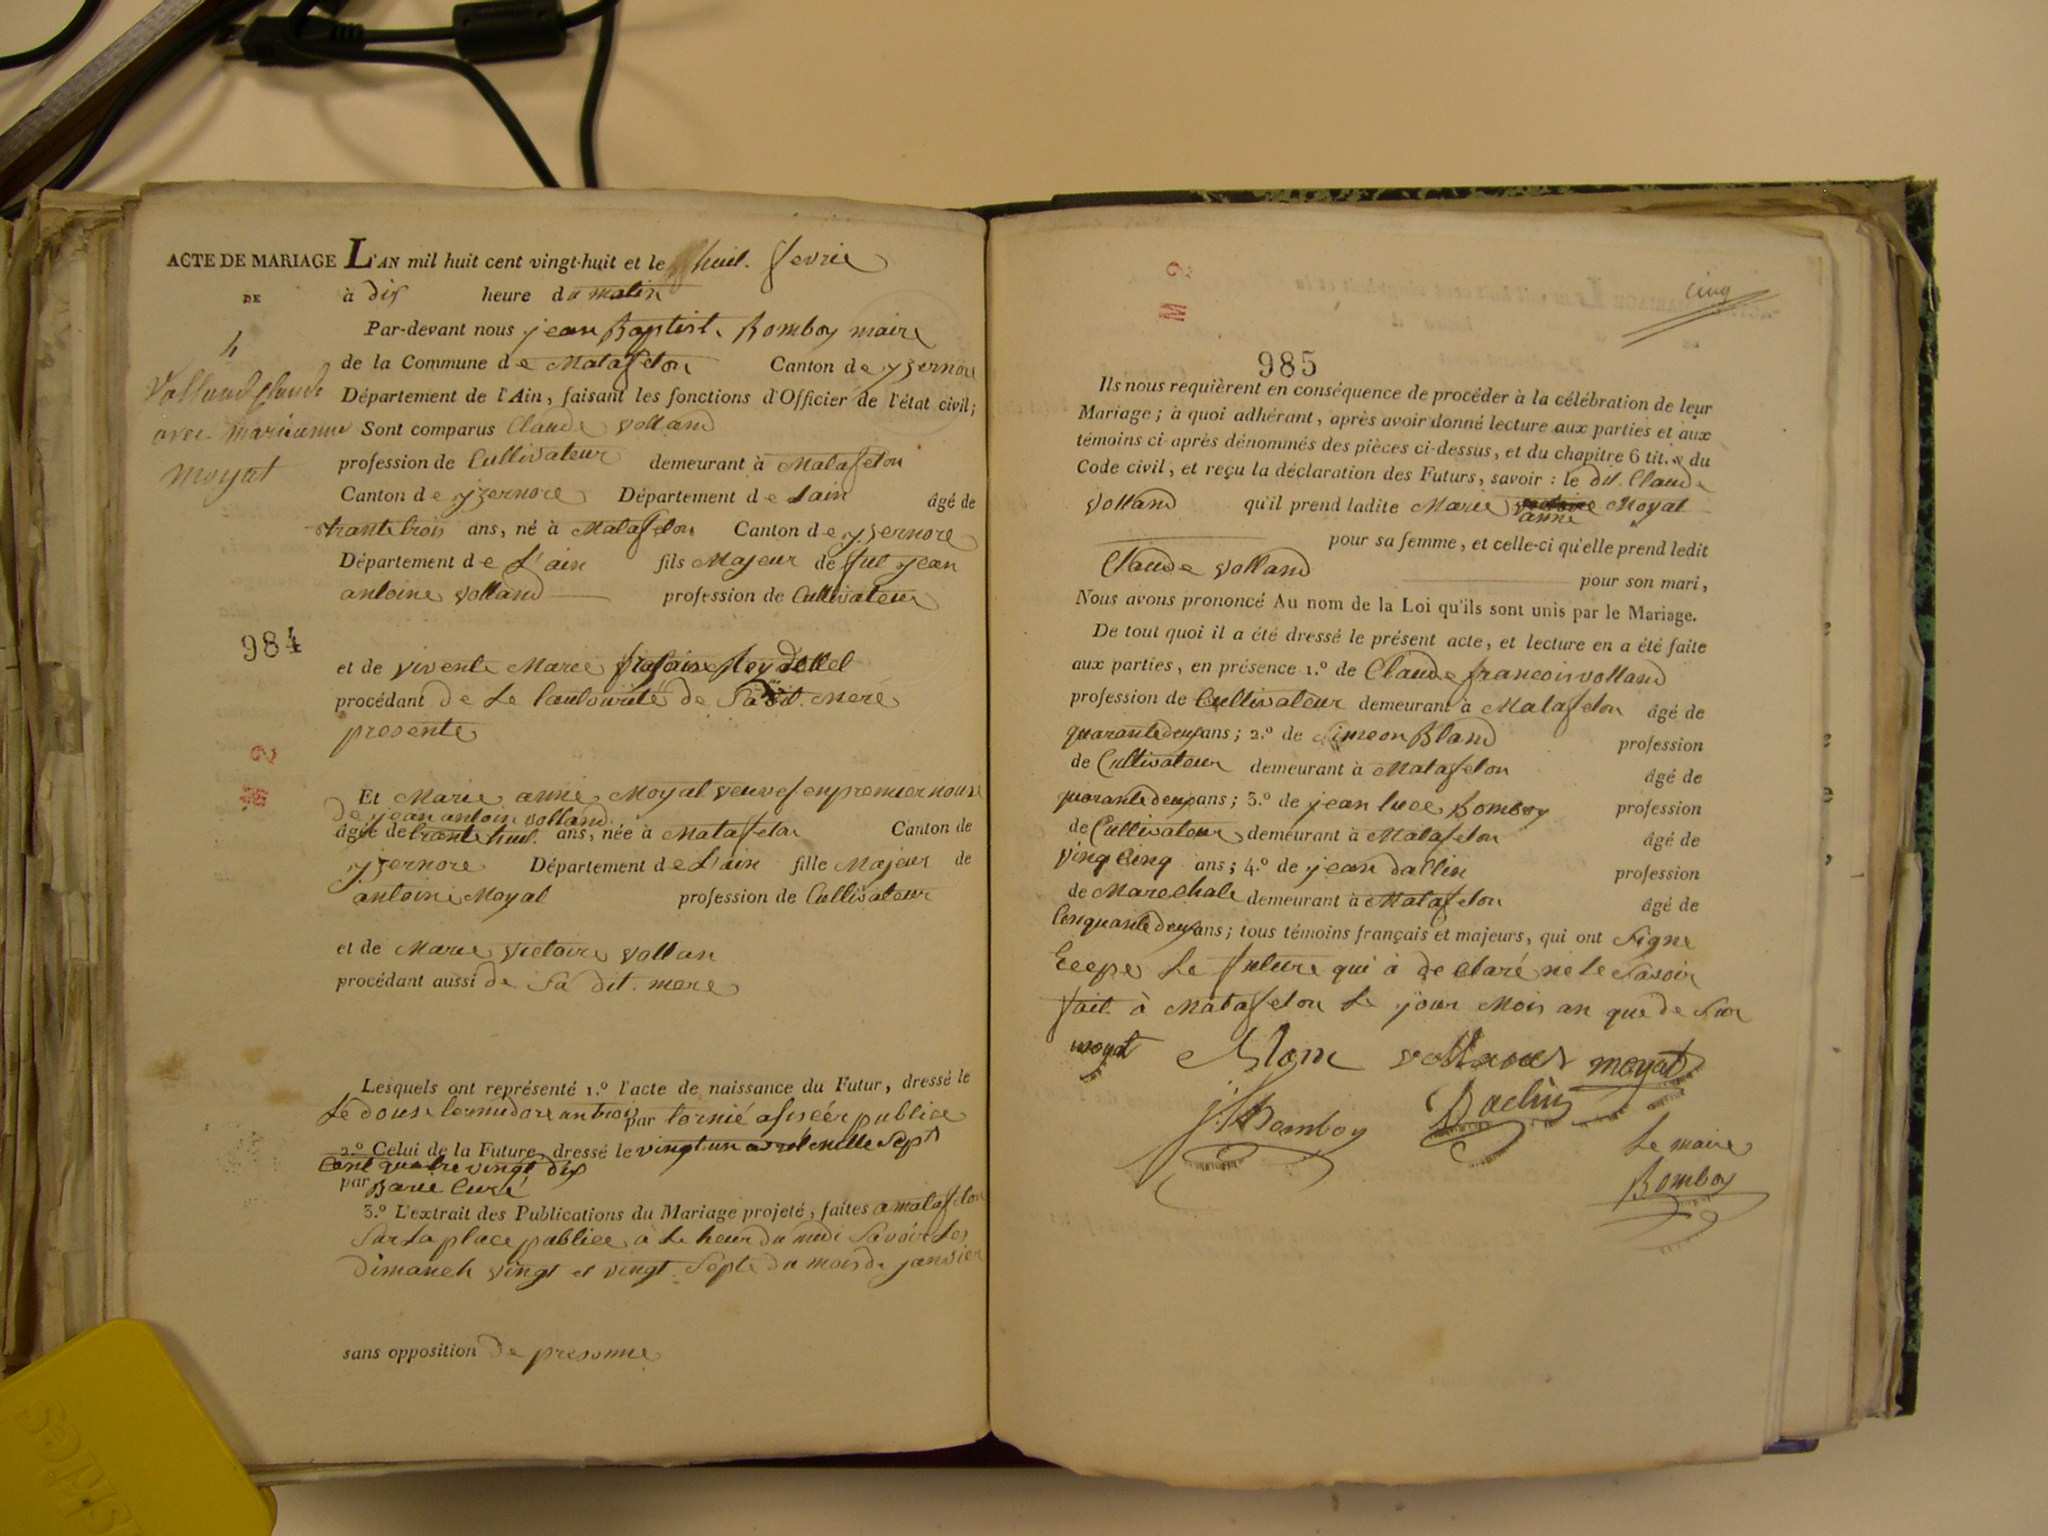 ACTE DE MARIAGE L'AN mil huit cent vingt-huit et le huit fevrie
DE à dix heure du matin
4
Volland Claude
avec marieanne
moyat
Par-devant nous jean Baptist Bomboy maire
de la Commune de Matafelon Canton de yzernore
Département de l'Ain, faisant les fonctions d'Officier de l'état civil;
Sont comparus Claude volland
profession de Cultivateur demeurant à Matafelon
Canton de yzernore Département de Lain âgé de
trante trois ans, né à Matafelon Canton de yzernore
Département de L'ain fils Majeur de fut jean
antoine volland profession de Cultivateur
984
et de vivente Marie
procédant de Le de Sa dit. mere
presente
Et Marie anne Moyat veuve en premier nouse
de jean antoin volland
âgée de trante huit ans, née à Matafelon Canton de
yzernore Département de L'ain fille Majeur de
antoine Moyat profession de Cultivateur
et de Marie victoire vollan
procédant aussi de Sa dit. mere
Lesquels ont représenté 1.º l'acte de naissance du Futur, dressé le
Le douse termidore an trois par tornié publice
2.º Celui de la Future, dressé le vingt un avril mille Sept
Cent quatre vingt dix
par Barie Curé
3.º L'extrait des Publications du Mariage projeté, faites a matafelon
Sur La place publice à Le heur du midi Savoir Les
Dimanch vingt et vingt Septe du mois de janvier
sans opposition de presonne
cinq
985
Ils nous requièrent en conséquence de procéder à la célébration de leur
Mariage; à quoi adhérant, après avoir donné lecture aux parties et aux
témoins ci-après dénommés des pièces ci-dessus, et du chapitre 6 tit. 5 du
Code civil, et reçu la déclaration des Futurs, savoir: le dit. Claude
volland qu'il prend ladite Marie anne Moyat
pour sa femme, et celle-ci qu'elle prend ledit
Claude volland pour son mari,
Nous avons prononcé Au nom de la Loi qu'ils sont unis par le Mariage.
De tout quoi il a été dressé le présent acte, et lecture en a été faite
aux parties, en présence 1.º de Claude francois volland
profession de Cultivateur demeurant à Matafelon âgé de
quarante deux ans; 2.º de Simeon Bland profession
de Cultivateur demeurant à Matafelon âgé de
quarante deux ans; 3.º de jean luce Bomboy profession
de Cultivateur demeurant à Matafelon âgé de
vinq Cinq ans; 4.º de jean dallin profession
de Marechale demeurant à Matafelon âgé de
Cinquante deux ans; tous témoins français et majeurs, qui ont Signe
Ecepe Le future qui à declaré ne le Savoir
fait. à Matafelon Le jour Mois an que de Sur
moyat volland moyat
j. l. Bomboy
Le maire
Bomboy